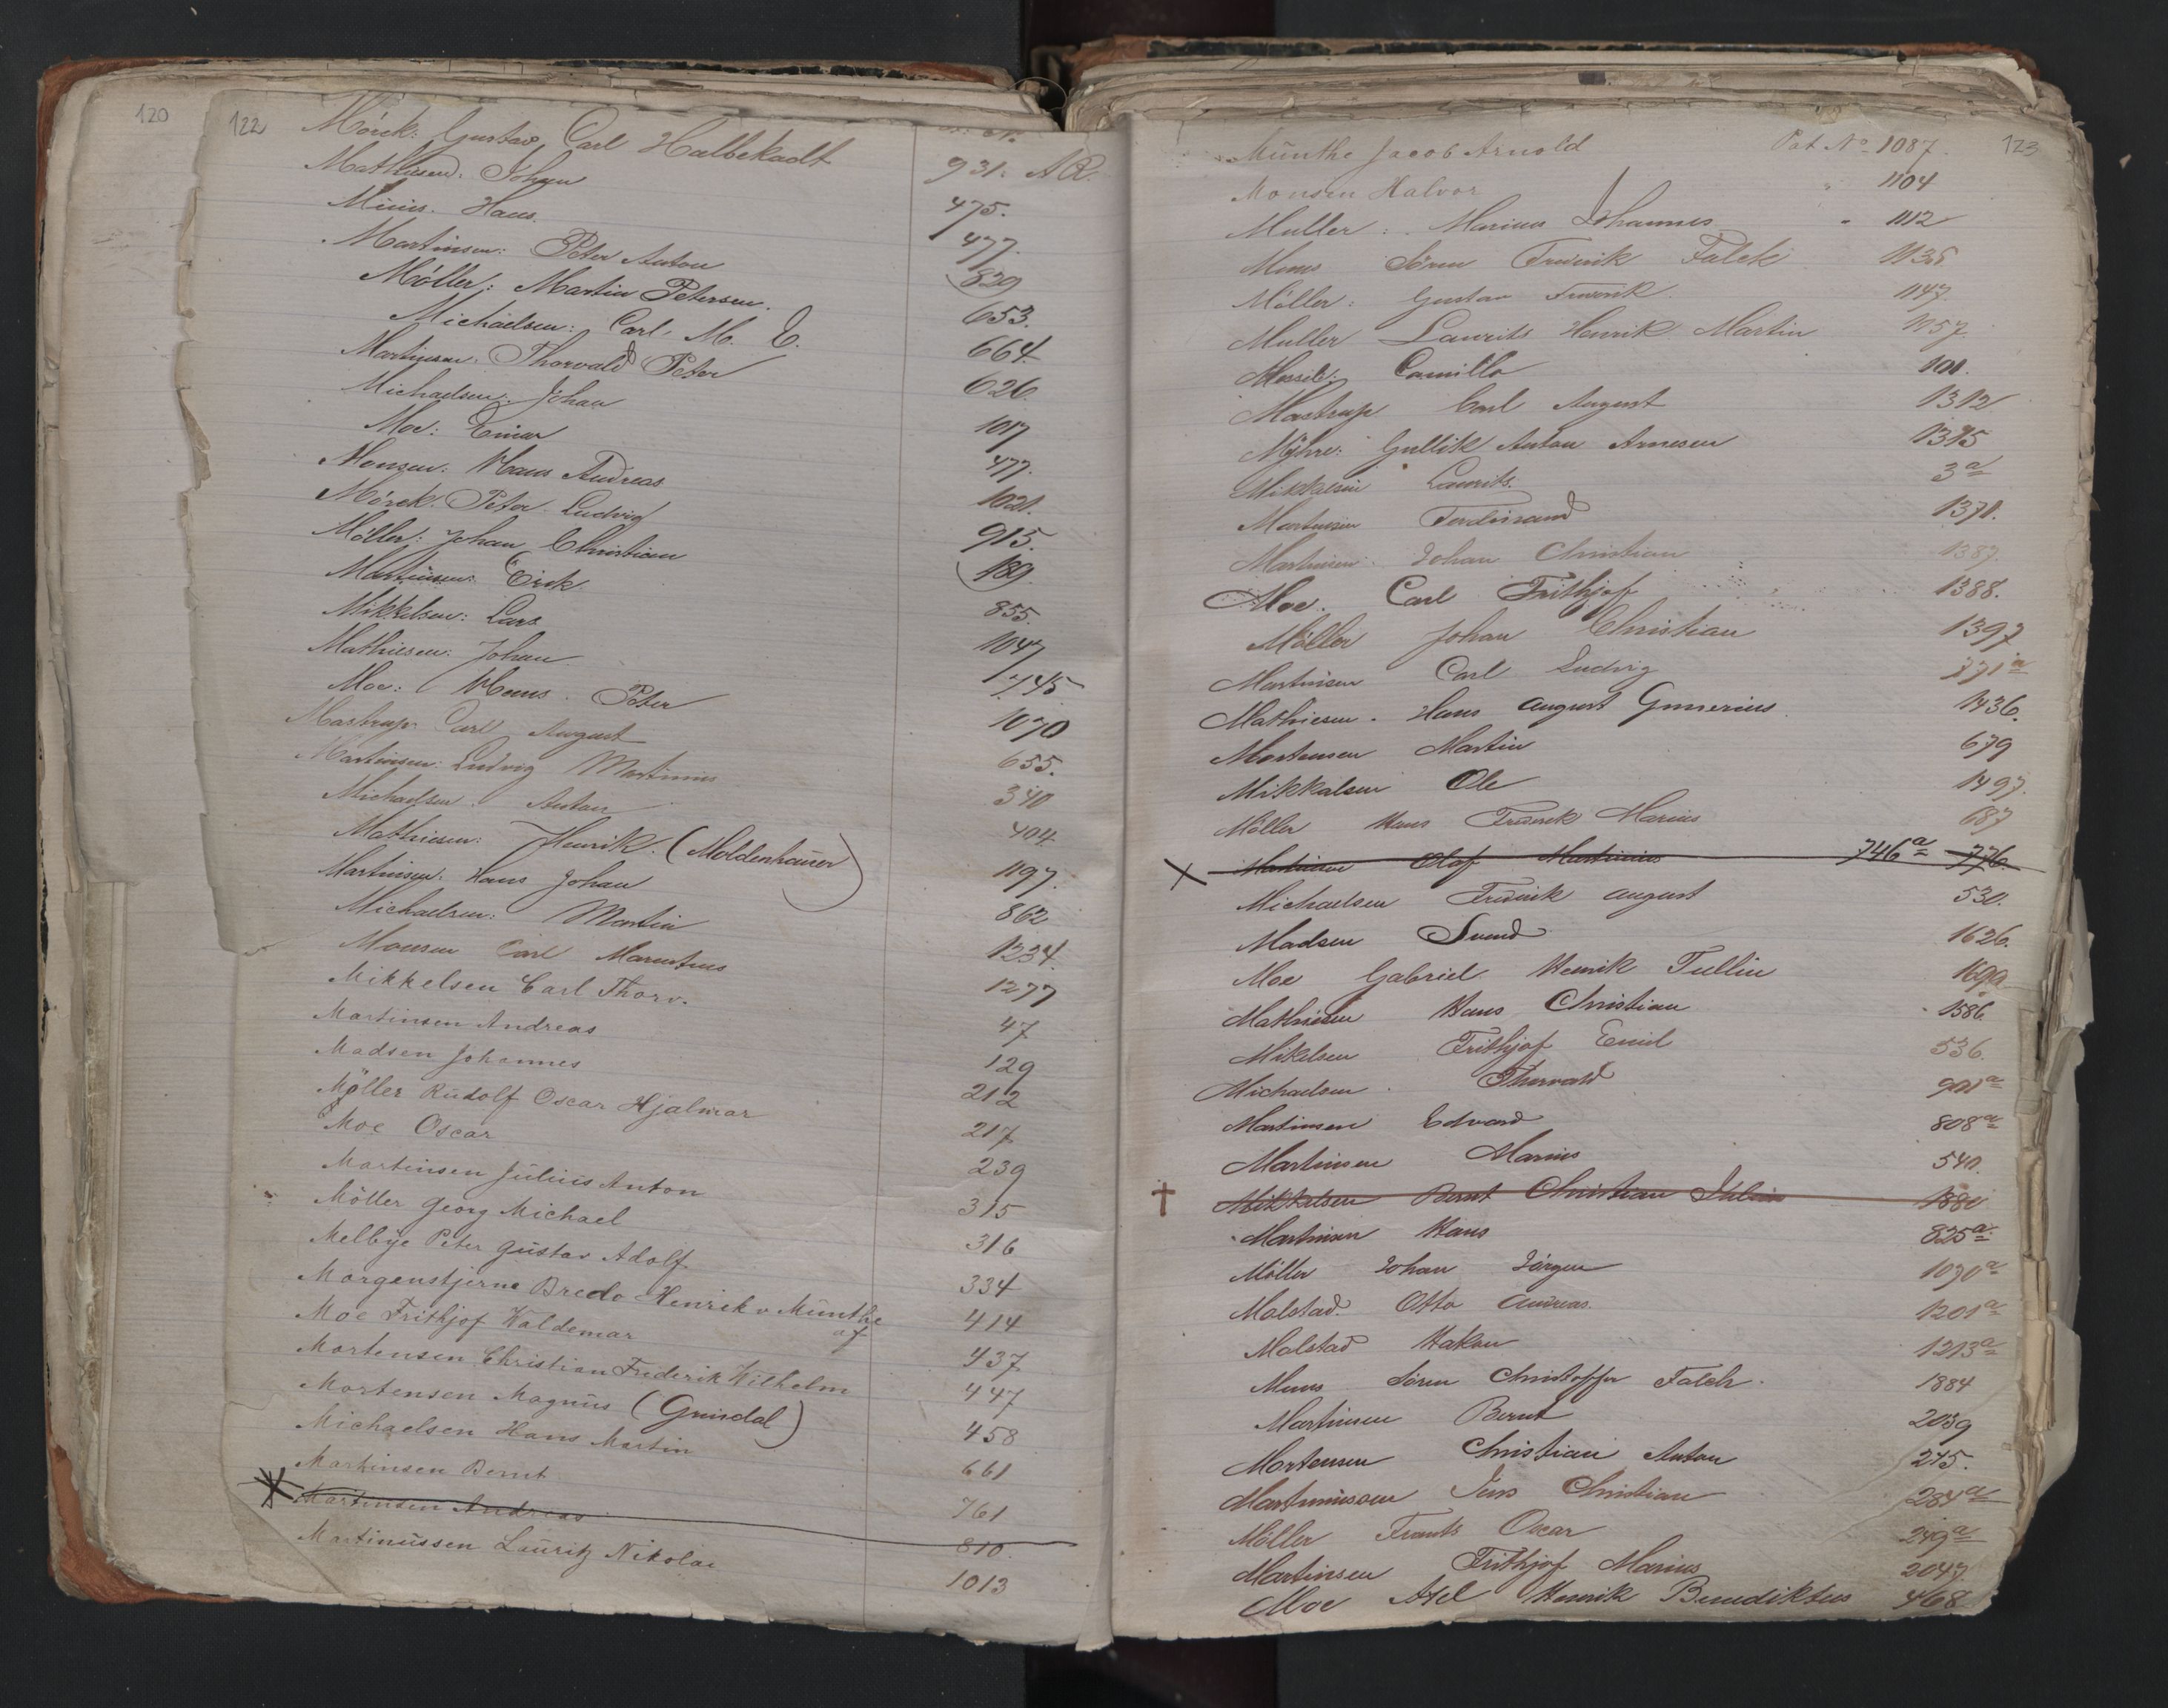 120
122
Mörck: Gustav Carl Halbekadt 931. A R.
Mathiesen: Johan 475.
Minis. Hans. 477.
Martinsen: Peter Anton 829
Möller: Martin Petersen. 653.
Michaelsen: Carl. M. E. 664.
Martinsen: Thorvald Peter 626.
Michaelsen: Johan 1017
Moe: Einar 477.
Monsen: Hans Andreas 1021.
Mörck: Peter Ludvig 915.
Möller: Johan Christian 189.
Martinsen: Erik. 855.
Mikkelsen: Lars 1047
Mathiesen: Johan 745
Moe: Hans Peter 1070
Mastrup: Carl August 655.
Martinsen: Ludvig Martinius 340
Michaelsen. Anton 404
Mathiesen: Henrik. (Moldenhauer) 1197.
Martinsen: Hans Johan 862
Michaelsen: Martin 1234.
Monsen Carl Marentius 1277
Mikkelsen Carl Thorv. 47
Martinsen Andreas 129
Madsen Johannes 212
Möller Rudolf Oscar Hjalmar 217
Moe Oscar 239
Martinsen Julius Anton 315
Möller Georg Michael 316
Melbye Peter Gustav Adolf 334
Morgenstjerne Bredo Henrik v Munthe af 414
Moe Frithjof Waldemar 437
Mortensen Christian Friderik Wilhelm 447
Mortensen Magnus (Grindal) 458
Michaelsen Hans Martin 661
Martinsen Bernt 761
Martinsen Andreas 810.
Martinussen Lauritz Nikolai 1013
123
Munthe Jacob Arnold Pat No 1087.
Monsen Halvor " 1104
Muller: Marius Johannes " 1112
Muus Sören Fredrik Falck 1136
Möller: Gustav Fredrik. 1147.
Muller Laurits Henrik Martin 1157.
Messel: Camillo 101.
Mastrup Carl August 1312
Myhre: Gullik Anton Arnesen 1345
Mikkalsen Laurits. 3a
Martinsen Ferdinand 1371.
Martinsen: Johan Christian 1387.
Moe. Carl Frithjof 1388.
Möller Johan Christian 1397
Martinsen Carl Ludvig 771a
Mathiesen. Hans August Gunerius. 1436.
Mortensen Martin 679
Mikkalsen Ole 1497.
Möller Hans Fredrik Marius 687
X Martinsen Olaf Martinius 746a 776.
Michaelsen Fredrik August 530.
Madsen Svend 1626.
Moe Gabriel Henrik Tullin 1699
Mathiesen Hans Christian 1586.
Mikelsen Frithjof Emil 536.
Michaelsen. Thorvald 901a
Martinsen Edvard 808a
Martinsen Marius 540.
† Mikkelsen Bernt Christian Julius 1881
Martinsen Hans 825a
Möller Johan Jörgen 1070a
Malstad. Otto Andreas. 1201a
Malstad Hakon 1213a
Muus Sören Christoffer Falch. 1884
Martinsen Bernt 2039
Mortensen Christian Anton 245.
Martinussen Jens Christian 284a
Möller Frants Oscar 249a
Martinsen Frithjof Marius 2047.
Moe Axel Henrik Benediktus 468